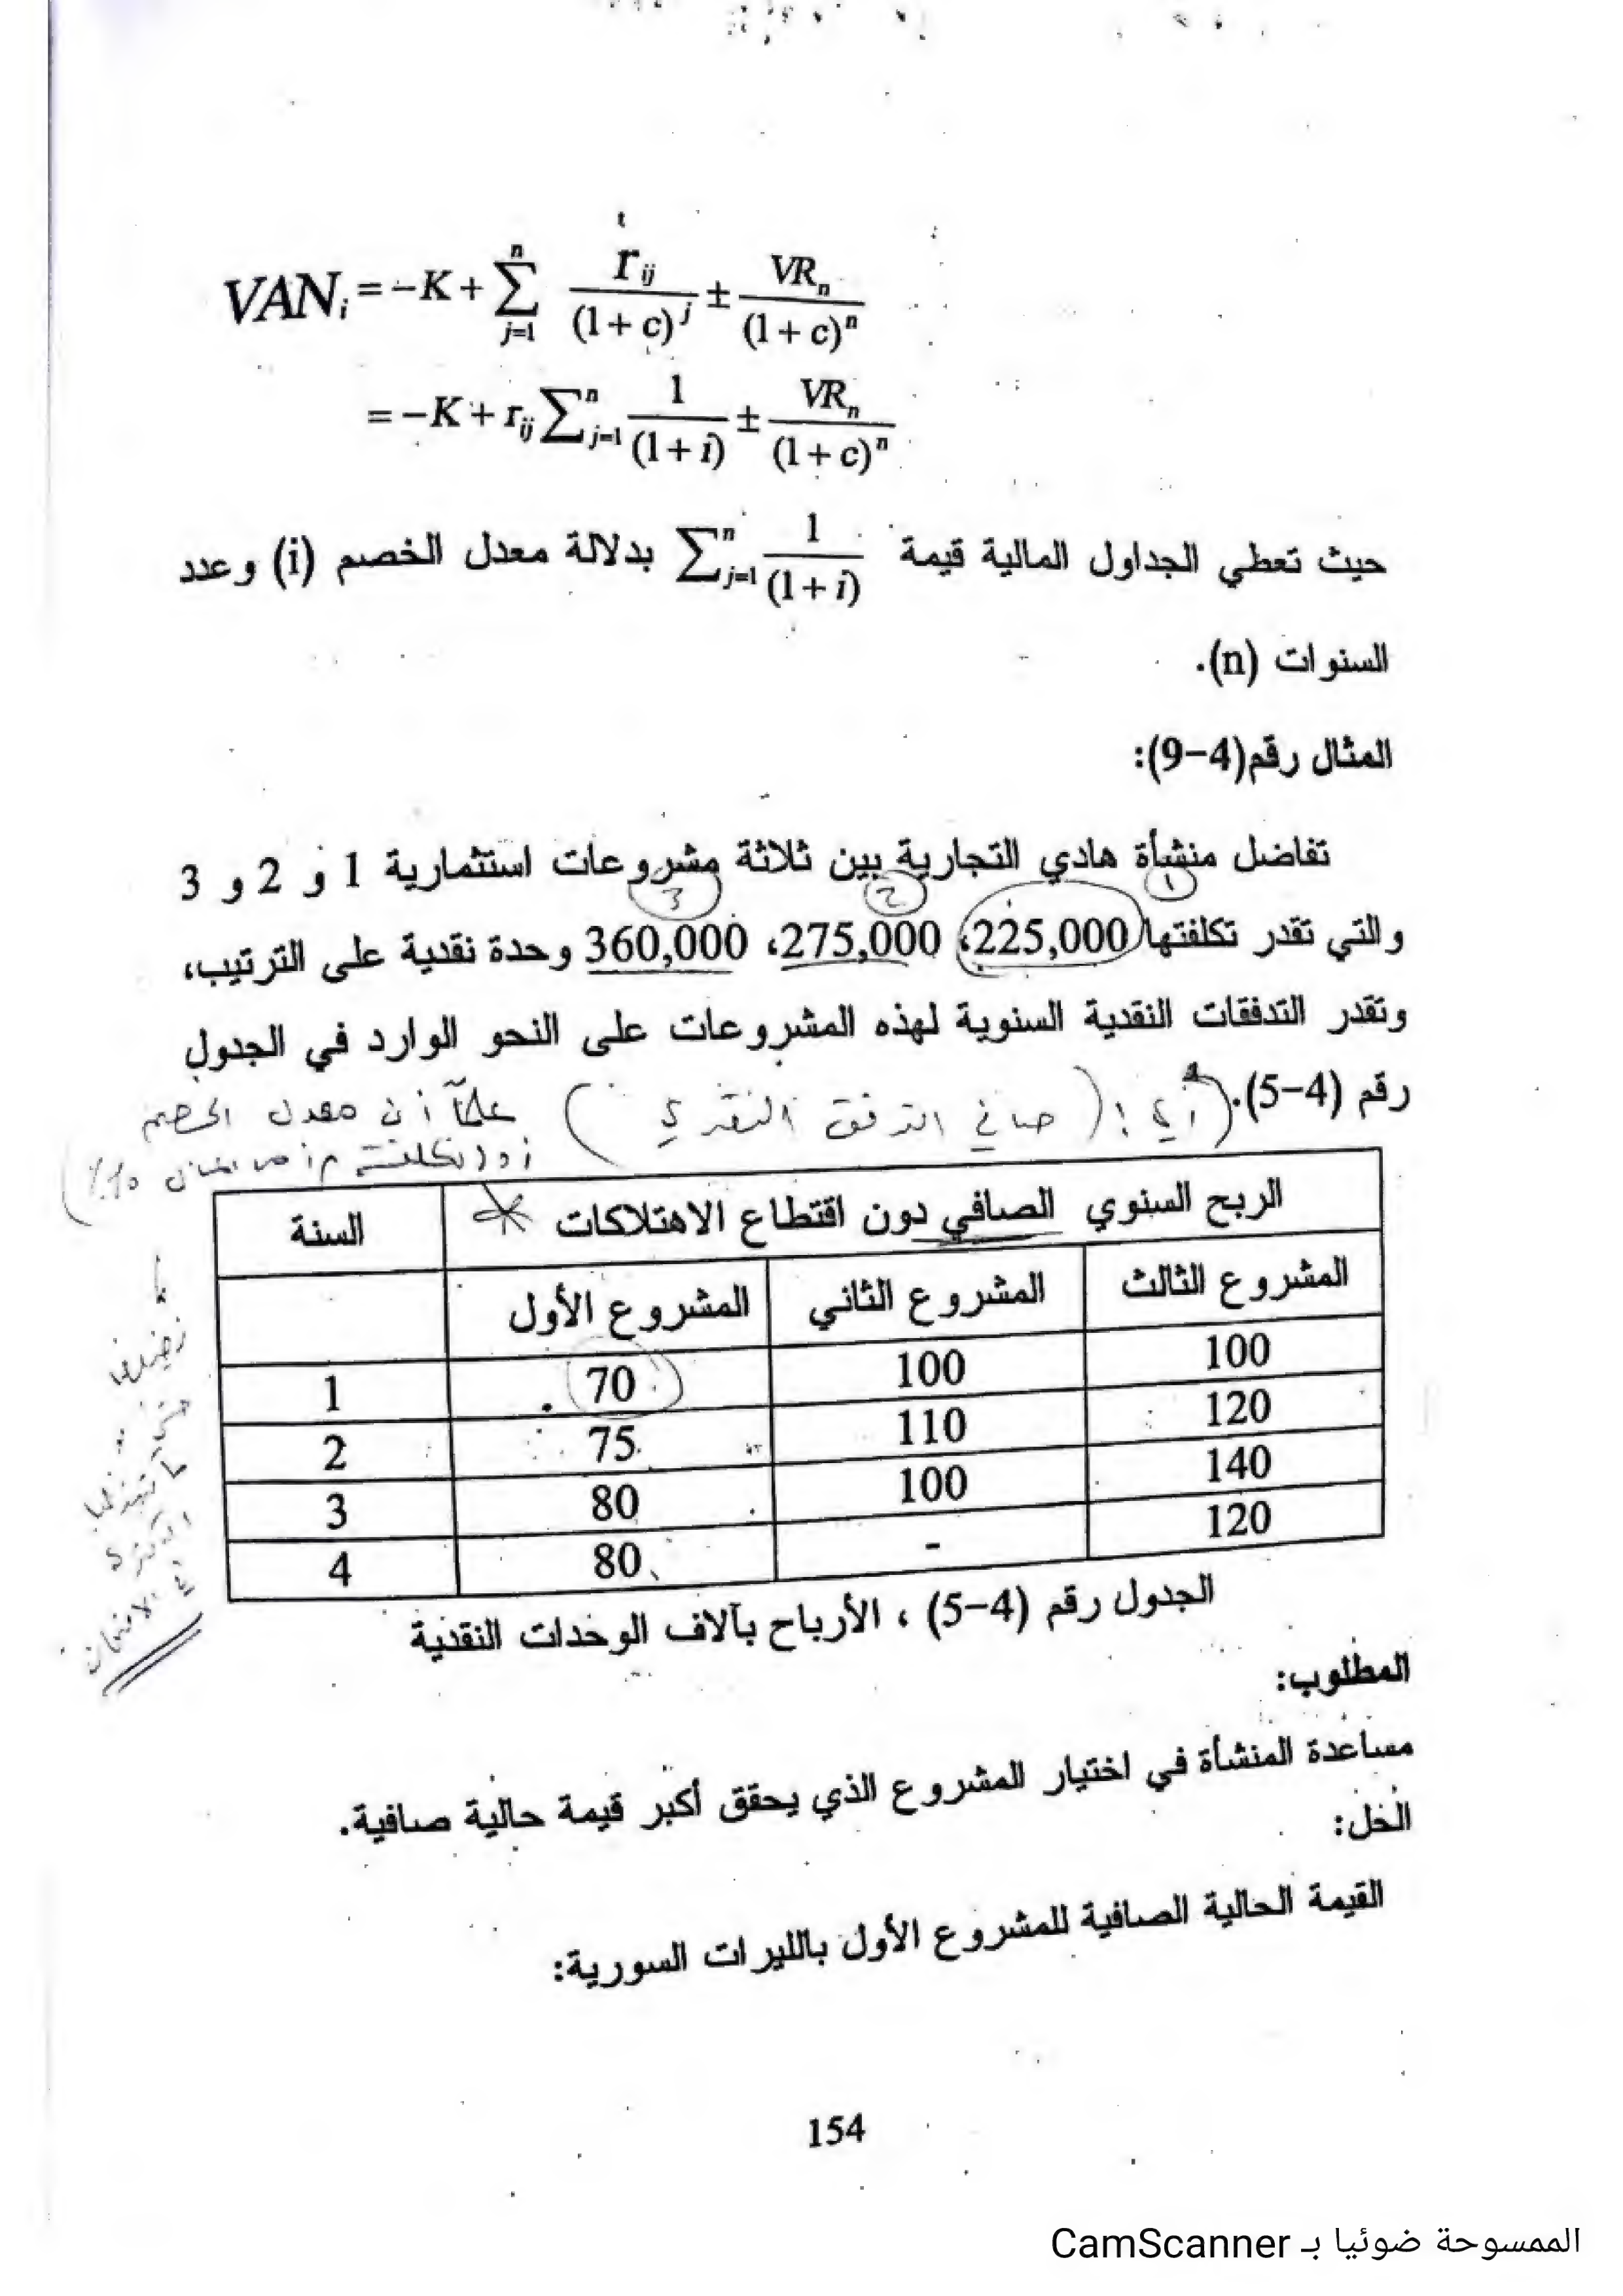 VANᵢ = −K + ∑ⁿⱼ₌₁ rᵢⱼ / (1 + c)ʲ ± VRₙ / (1 + c)ⁿ
= −K + rᵢⱼ ∑ⁿⱼ₌₁ 1 / (1 + i) ± VRₙ / (1 + c)ⁿ
حيث تعطي الجداول المالية قيمة ∑ⁿⱼ₌₁ 1 / (1 + i) بدلالة معدل الخصم (i) وعدد
السنوات (n).
المثال رقم(4-9):
تفاضل منشأة هادي التجارية بين ثلاثة مشروعات استثمارية 1 و 2 و 3
1 2 3
والتي تقدر تكلفتها 225,000، 275,000، 360,000 وحدة نقدية على الترتيب،
وتقدر التدفقات النقدية السنوية لهذه المشروعات على النحو الوارد في الجدول
رقم (4-5). أي: (صافي التدفق النقدي) علماً أن معدل الخصم
أو (تكلفة 10%)
السنة الربح السنوي الصافي دون اقتطاع الاهتلاكات
المشروع الأول المشروع الثاني المشروع الثالث
1 70 100 100
2 75 110 120
3 80 100 140
4 80 - 120
الجدول رقم (4-5) ، الأرباح بآلاف الوحدات النقدية
المطلوب:
مساعدة المنشأة في اختيار المشروع الذي يحقق أكبر قيمة حالية صافية.
الحل:
القيمة الحالية الصافية للمشروع الأول بالليرات السورية:
154
الممسوحة ضوئيا بـ CamScanner